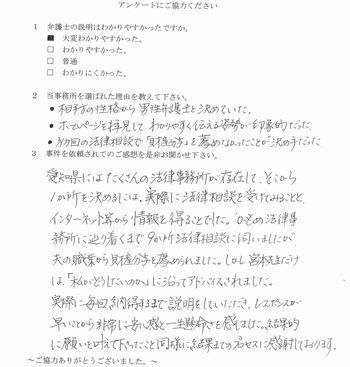 アンケートにご協力ください
1 弁護士の説明はわかりやすかったですか。
■ 大変わかりやすかった。
□ わかりやすかった。
□ 普通
□ わかりにくかった。
2 当事務所を選ばれた理由を教えて下さい。
・相手方の性格から男性弁護士と決めていた。
・ホームページを拝見して わかりやすく伝える姿勢が印象的だった
・初回の法律相談で「財産分与」を薦めなかったことが決め手だった
3 事件を依頼されてのご感想を是非お聞かせ下さい。
愛知県にはたくさんの法律事務所が存在して、そこから
1か所を決めるには、実際に法律相談を受けてみることと、
インターネット等から情報を得ることでした。
務所に辿り着くまで9か所法律相談に伺いましたが
夫の職業から財産分与を薦められました。しかし 宮本先生だけ
は、「私がどうしたいのか」に沿ってアドバイスされました。
実際に毎回、納得するまで説明をしていただき、レスポンスが
早いことから非常に安心感と一生懸命さを感じました。結果的
に願いを叶えて下さったこと同様に、結果までのプロセスに感謝しております。
～ご協力ありがとうございました。～